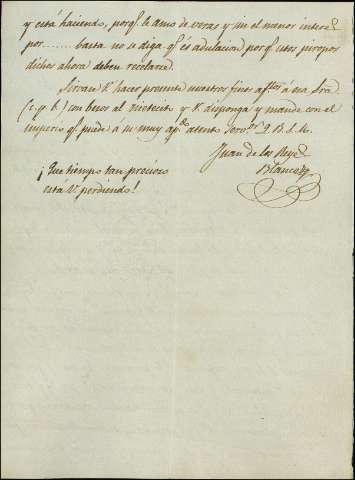 y está haciendo, porq.e le amo de veras y sin el menor interes
por........ basta no se diga q.e és adulacion porq.e estos piropos
dichos ahora deben recelarse.
Sirvase V. hacer presente nuestros finos af.tos á esa Sra
(c. p. b.) con besos al nietecito y V. disponga y mande con el
imperio q.e puede á su muy ap.do atento Serv.or Q. B. S. M.
Juan de los Reyes
Blanco
¡Que tiempo tan precioso
está V. perdiendo!